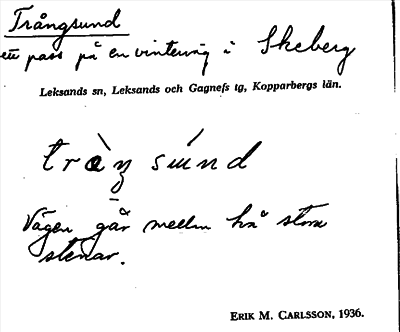 Trångsund
ett pass på en vinterväg i Skeberg
Leksands sn, Leksands och Gagnefs tg, Kopparbergs län.
Vägen går mellan två stora
stenar.
ERIK M. CARLSSON, 1936.